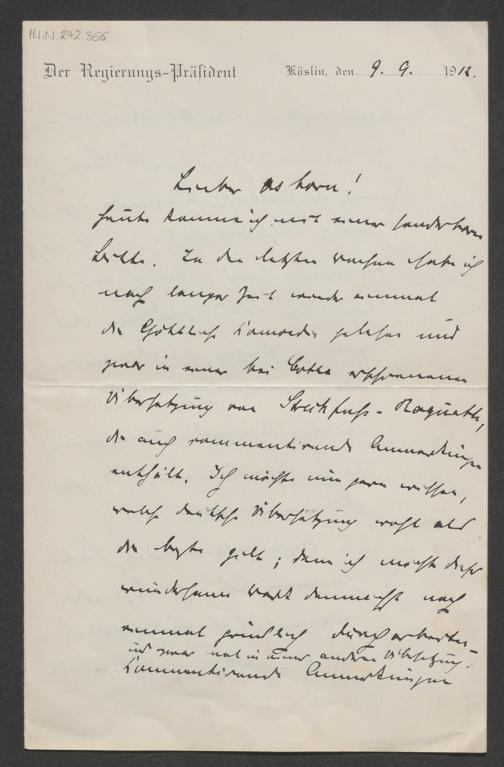 H.I.N. 242.366
Der Regierungs-Präsident Köslin, den 9. 9. 1912.
Lieber Osborn!
Heute komme ich mit einer sonderbaren
Bitte. In den letzten Wochen habe ich
nach langer Zeit wieder einmal
die Göttliche Komoedie gelesen und
zwar in einer bei Cotta erschienenen
Übersetzung von Streckfuss-Roquette,
die auch commentirende Anmerkungen
enthält. Ich möchte nun gern wissen,
welche deutsche Übersetzung wohl als
die beste gilt; denn ich möchte dieses
wundersame Werk demnächst noch
einmal gründlich durcharbeiten
und zwar mal in einer anderen Übersetzung.
Kommentirende Anmerkungen